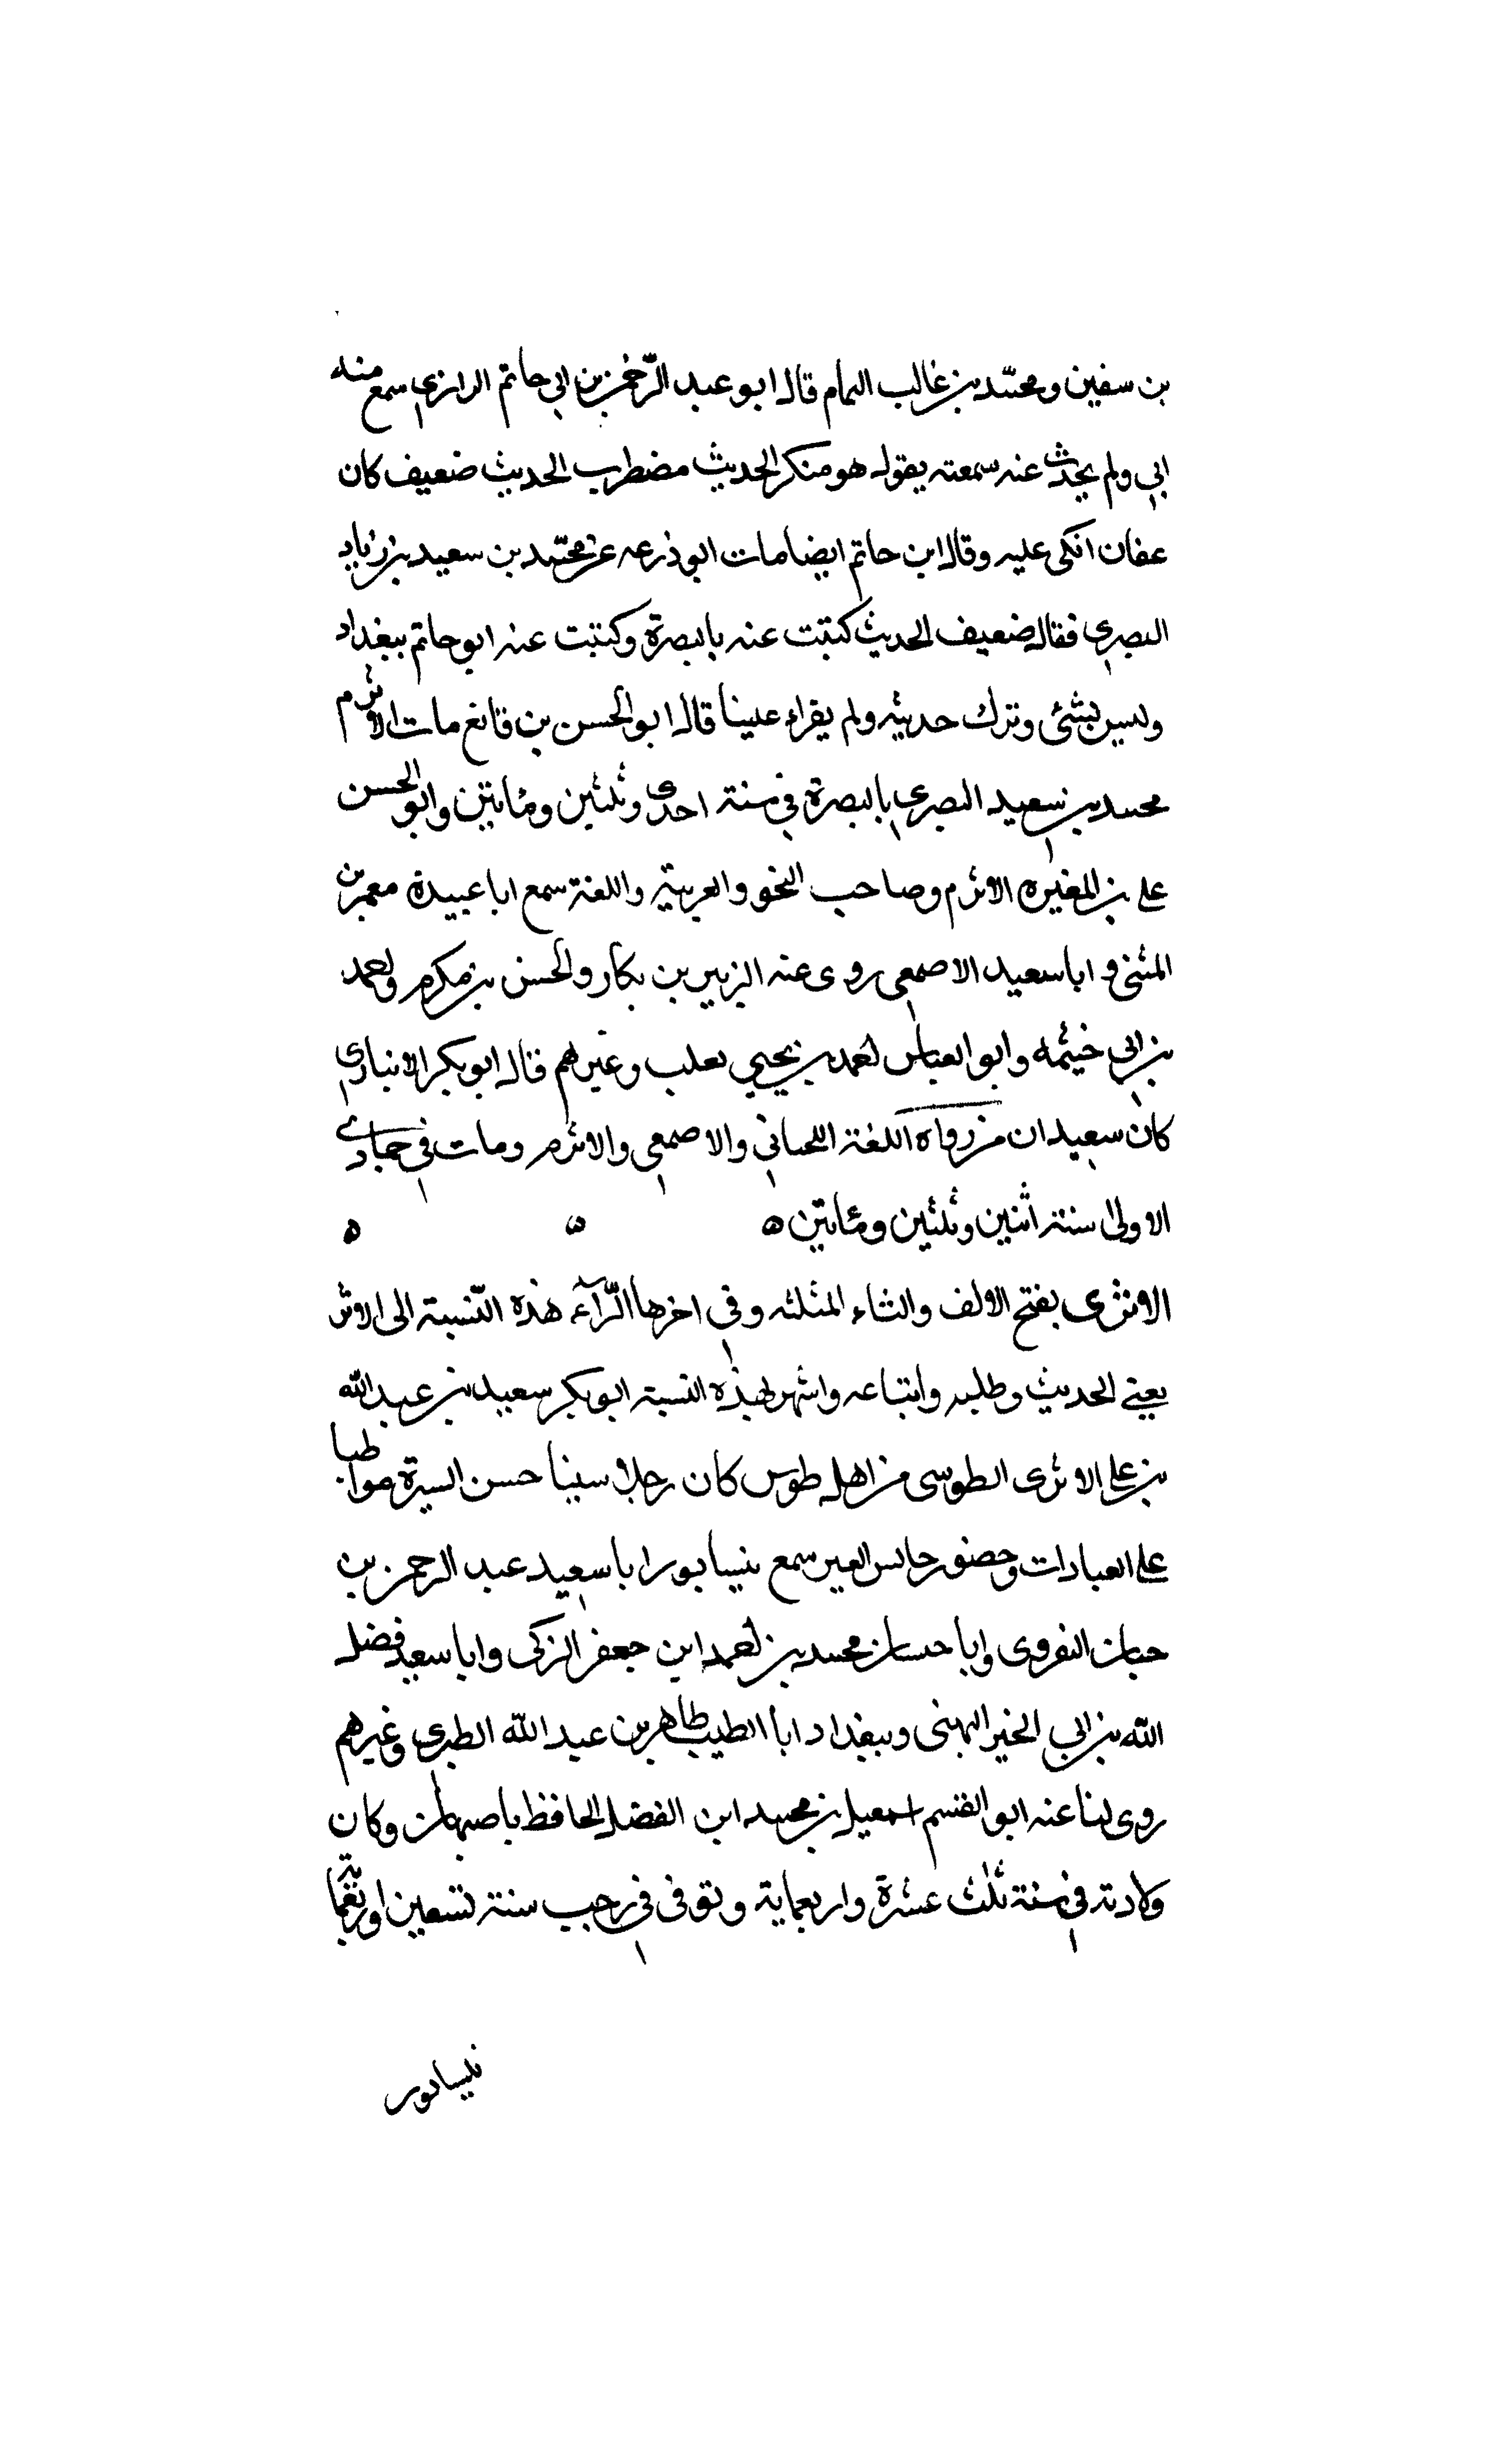 بن سفين ومحمد بن غالب التمام قال ابو عبد الرحمن بن ابي حاتم الرازي سمع منه
ابي ولم يحدث عنه سمعته يقول هو منكر الحديث مضطرب الحديث ضعيف كان
عفان انكى عليه وقال ابن حاتم ايضا مات ابو ذرعه عن محمد بن سعيد بن زياد
البصري فقال ضعيف الحديث كتبت عنه بالبصرة وكتبت عنه ابو حاتم ببغداد
وليس بشئ وترك حديثه ولم يقراء علينا قال ابو الحسن بن قانع مات الاثرم
محمد بن سعيد البصري بالبصرة في سنة احدى وثلثين ومائتين وابو الحسن
علي بن المغيره الاثرم وصاحب النحو والعربية واللغة سمع ابا عبيدة معمر بن
المثنى و ابا سعيد الاصمعي روى عنه الزبير بن بكار والحسن بن مكرم واحمد
بن ابي خيثمه وابو العباس احمد بن يحيى ثعلب وغيرهم قال ابو بكر الانباري
كان سعيدان من رواه اللغة اللحياني والاصمعي والاثرم ومات في جمادي
الاولى سنة اثنين وثلثين ومائتين ه ه ه
الاثرى بفتح الالف والثاء المثلثه وفي اخرها الرآء هذه النسبة الى الاثر
يعني الحديث وطلبه واتباعه واشهر بهذه النسبة ابو بكر سعيد بن عبد الله
بن علي الاثرى الطوسي من اهل طوس كان رجلا سنيا حسن السيرة مواظبا
على العبادات وحضور مجالس سمع بنيسابور ابا سعيد عبد الرحمن بن
حمدان النصروى وابا حسان محمد بن احمد ابن جعفر المزكى وابا سعيد فضل
الله بن ابي الخير الميهنى وببغداد ابا الطيب طاهر بن عبد الله الطبري وغيرهم
روى لنا عنه ابو القسم اسمعيل بن محمد ابن الفضل الحافظ باصبهان وكان
ولادته في سنة ثلث عشرة واربعماية وتوفى في رجب سنة تسعين واربعماية
نيسابور